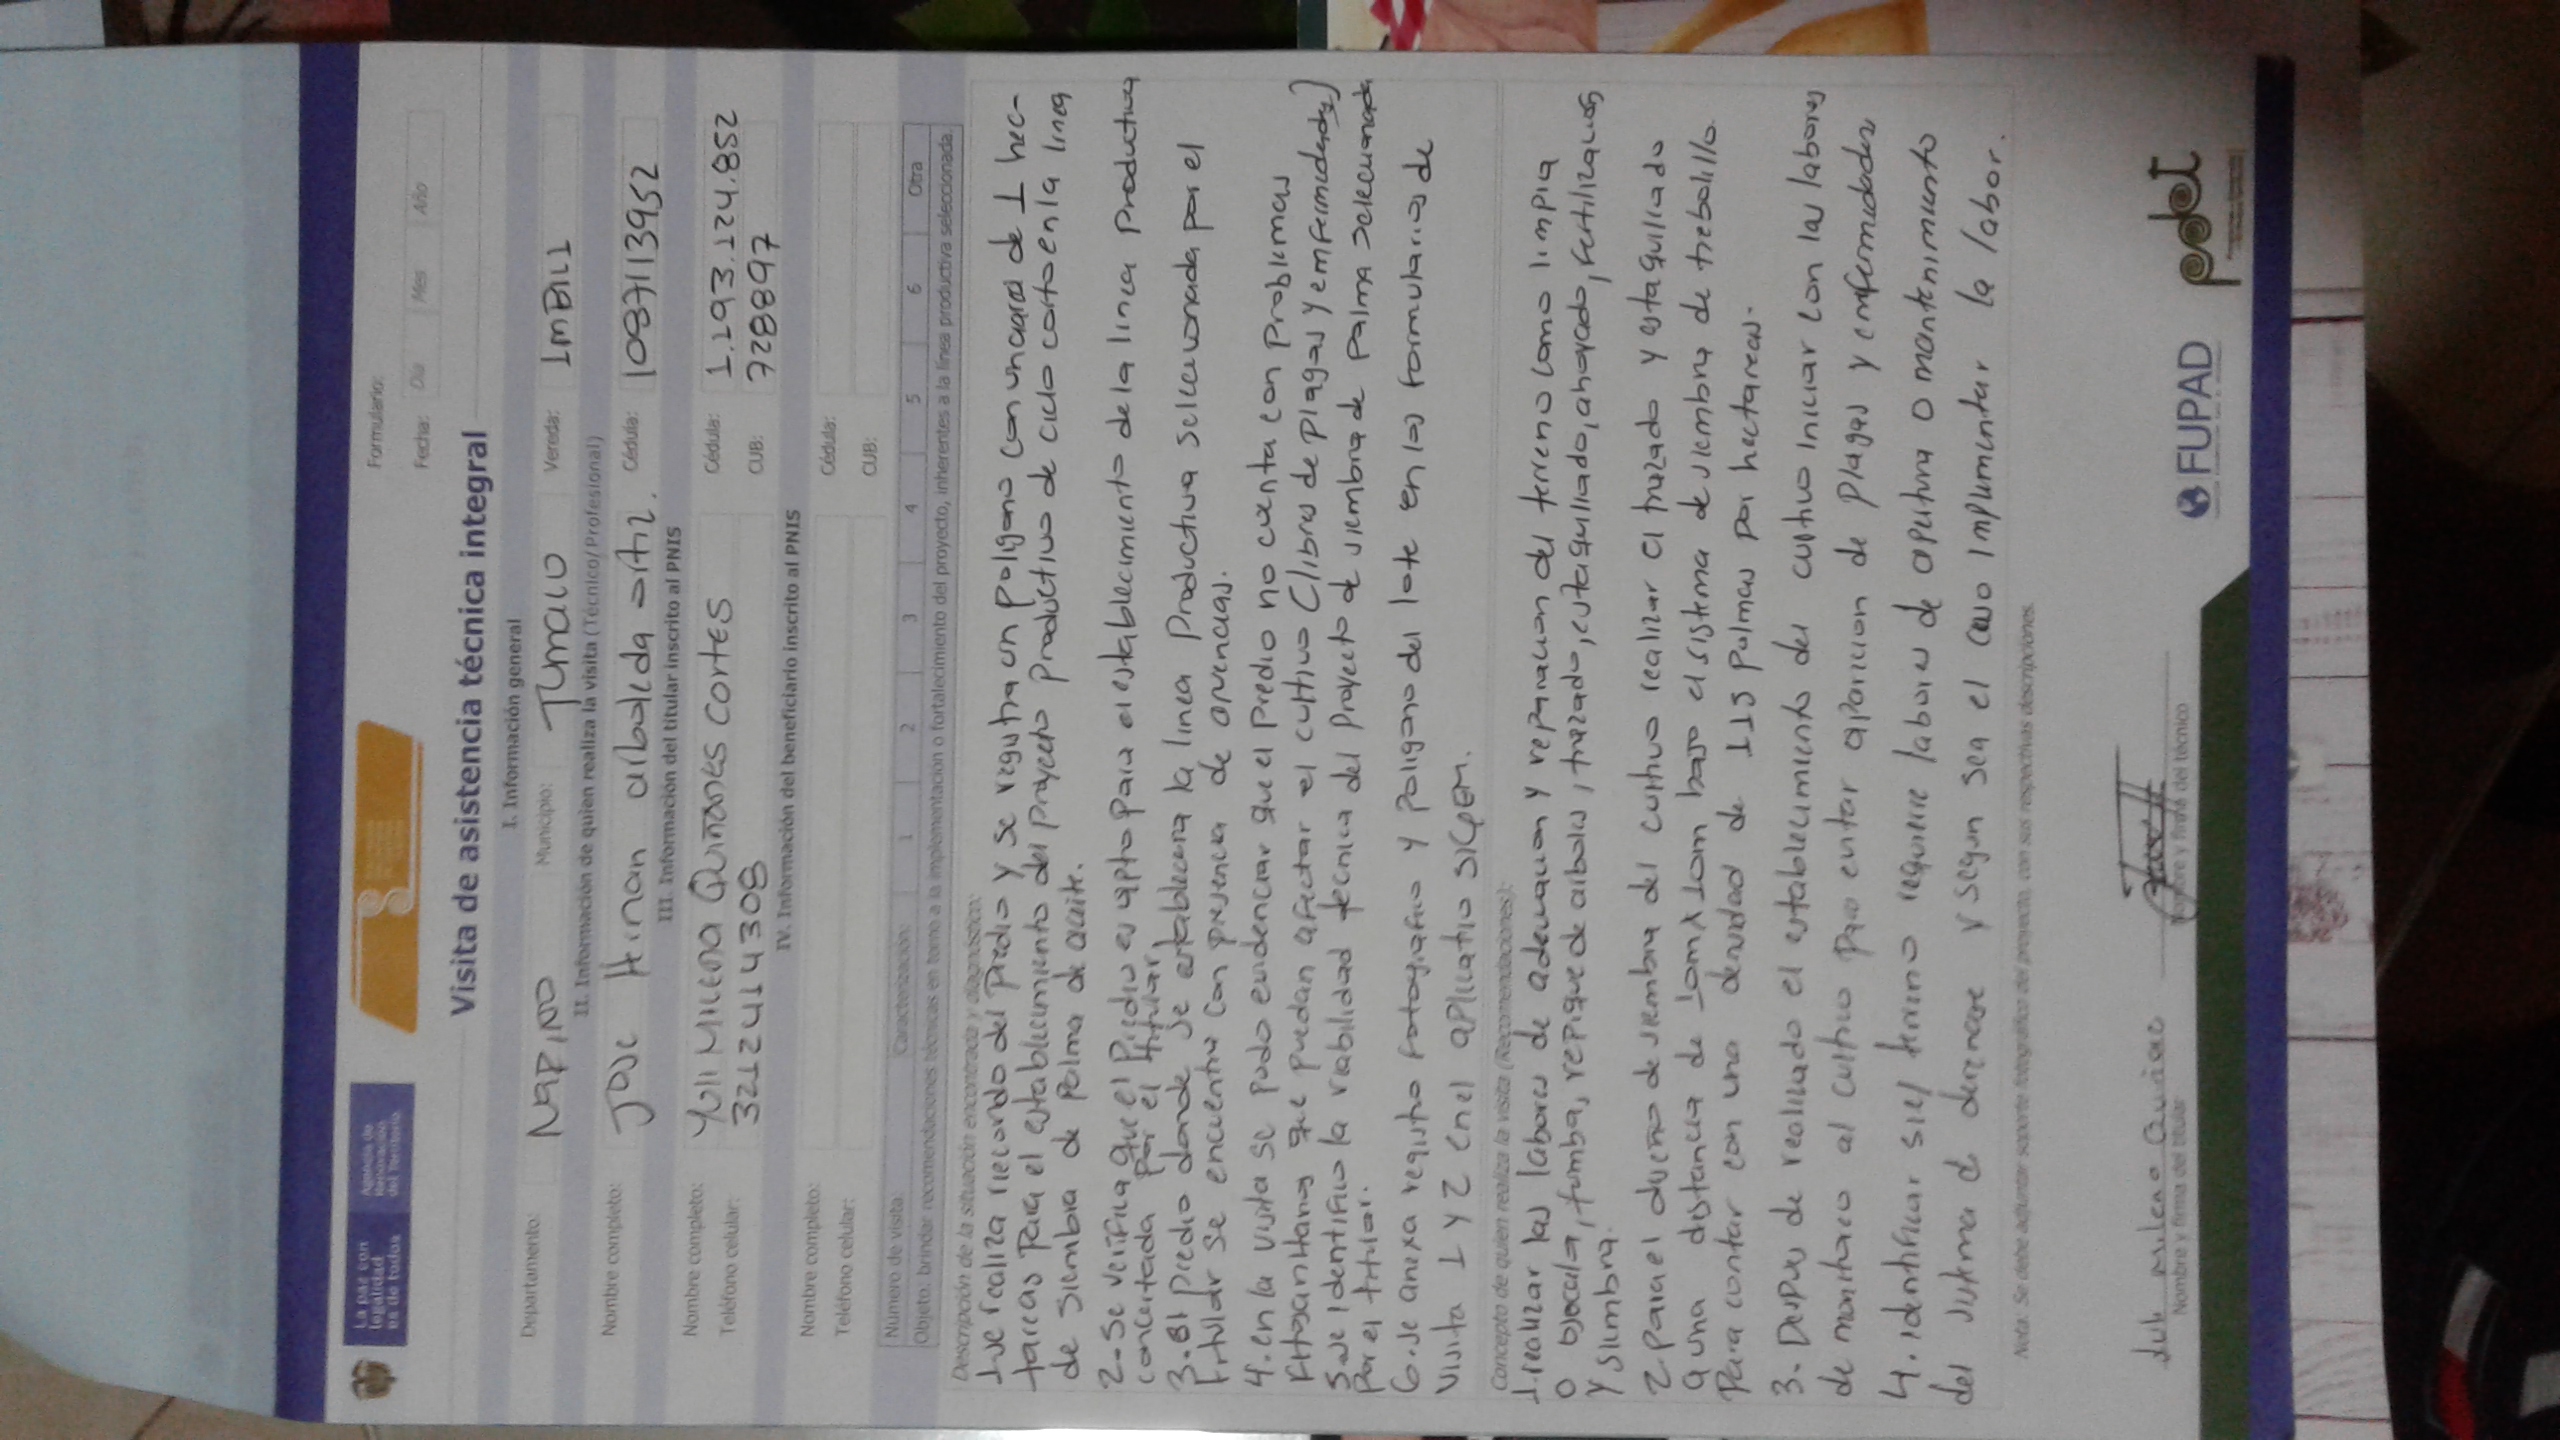 La paz con
legalidad
es de todos
Agencia de
Renovación
del Territorio
Formulario:
Fecha: Día Mes Año
Visita de asistencia técnica integral
I. Información general
Departamento: NARIÑO Municipio: TUMACO Vereda: IMBILI
II. Información de quien realiza la visita (Técnico/Profesional)
Nombre completo: Jose Hernan arboleda ortiz. Cédula: 1087113952
III. Información del titular inscrito al PNIS
Nombre completo: Yuli Milena Quiñones cortes Cédula: 1.193.124.852
Teléfono celular: 3212414308 CUB: 728897
IV. Información del beneficiario inscrito al PNIS
Nombre completo: Cédula:
Teléfono celular: CUB:
Número de visita: Caracterización: 1 2 3 4 5 6 Otra
Objeto: brindar recomendaciones técnicas en torno a la implementación o fortalecimiento del proyecto, inherentes a la línea productiva seleccionada.
Descripción de la situación encontrada y diagnóstico:
1-se realiza recorrido del predio y se registra un poligono con un area de 1 hec-
tareas para el establecimiento del proyecto productivo de ciclo corto en la linea
de siembra de palma de aceite.
2-se verifica que el predio es apto para el establecimiento de la linea productiva
concertada por el titular
3.El predio donde se establecera la linea productiva seleccionada por el
titular se encuentra con presencia de arvenses.
4.en la visita se pudo evidenciar que el predio no cuenta con problemas
fitosanitarios que puedan afectar el cultivo (libres de plagas y enfermedades)
5 se identifico la viabilidad tecnica del proyecto de siembra de palma seleccionada
por el titular.
6.se anexa registro fotografico y poligono del lote en los formularios de
visita 1 y 2 en el aplicativo SIGEM.
Concepto de quien realiza la visita (Recomendaciones):
1.realizar las labores de adecuacion y reparacion del terreno como limpia
o socola, tumba, repique de arboles, trazado, estaquillado, ahoyado, fertilizacion
y siembra.
2 para el diseño de siembra del cultivo realizar el trazado y estaquillado
a una distancia de 10m x 10m bajo el sistema de siembra de trebolillo.
Para contar con una densidad de 115 palmas por hectareas.
3. Despues de realizado el establecimiento del cultivo iniciar con las labores
de monitoreo al cultivo para evitar aparicion de plagas y enfermedades
4. identificar si el terreno requiere labores de apertura o mantenimiento
del sistema de drenaje y segun sea el caso implementar la labor.
Nota: Se debe adjuntar soporte fotográfico del proyecto, con sus respectivas descripciones.
Juli milena Quiñonez
Nombre y firma del titular
Nombre y firma del técnico
FUPAD
pdet